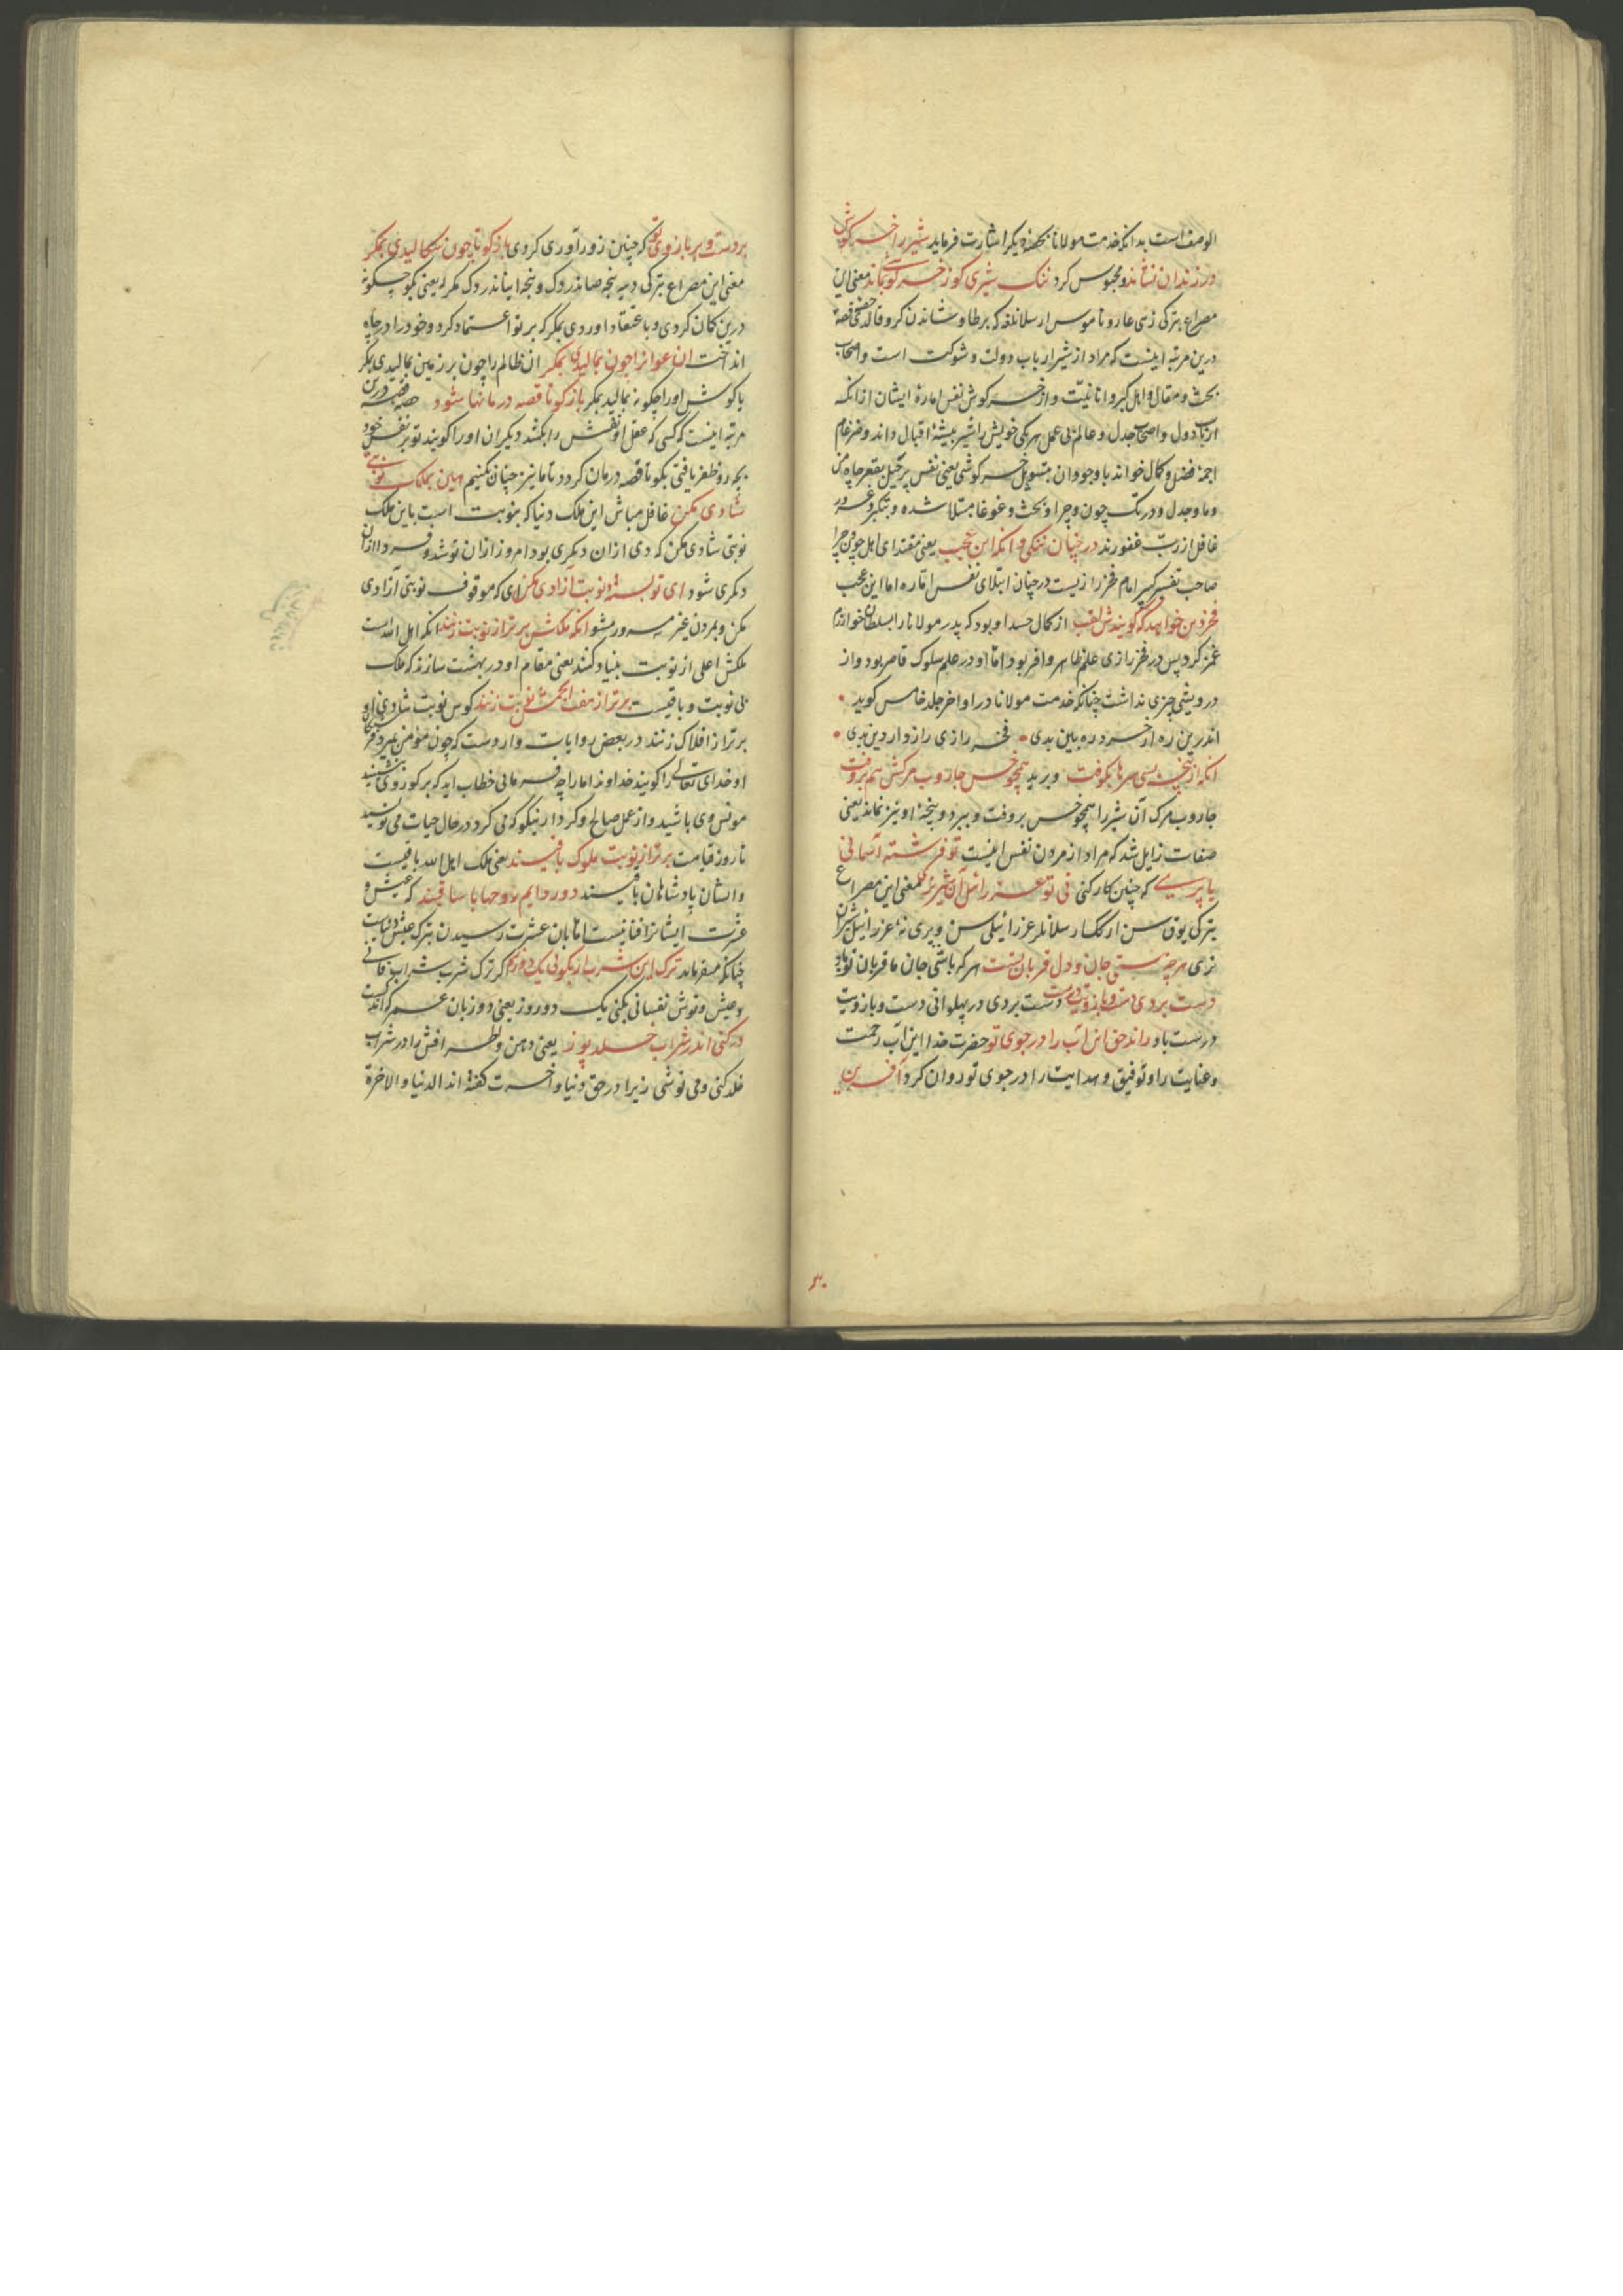 الوصف است بدانکه خدمت مولانا بحصهٔ دیکر اشارت فرماید شیر را خرکوشی
در زندان نشاند و محبوس کرد ننک شیری کو ز خرکوشی بماند معنی این
مصراع بترکی زهی عار و ناموس ارسلانلغه که
درین مرتبه اینست که مراد از شیر ارباب دولت و شوکت است و اصحاب
بحث و مقال و اهل کبر و انانیت و از خرکوش نفس امارهٔ ایشان از انکه
ارباب دول و اصحاب جدل و عالم بی عمل هر یکی خویش را شیر بیشهٔ اقبال داند و ضرغام
اجمهٔ فضل و کمال خواند با وجود ان بتسویل خرکوشی یعنی نفس پر حیل بقعر چاه من
و ما و جدل و در تک چون و چرا و بحث و غوغا مبتلا شده و بتکبر و غرور
غافل از رب غفورند در چنان ننکی و انکه این عجب یعنی مقتدای اهل چون و چرا
صاحب تفسیر کبیر امام فخر رازیست در چنان ابتلای نفس اماره اما این عجب
فخر دین خواهد که کویندش لقب از کمال حسد او بود که پدر مولانا را بسلطان خوارزم
غمز کرد پس در فخر رازی علم ظاهر وافر بود اما او در علم سلوک قاصر بود و از
درویشی چیزی نداشت چنانکه خدمت مولانا در اواخر جلد خامس کوید
اندرین ره ار خرد ره بین بدی فخر رازی راز دار دین بدی
انکه از پنجه بسی سرها بکوفت و برید همچو خس جاروب مرکش هم بروفت
جاروب مرک آن شیر را همچو خس بروفت و ببرد و پنجهٔ او نیز نماند یعنی
صفات زایل شد که مراد از مردن نفس اینست تو فرشته آسمانی
یا پریی که چنین کار کنی نی تو عزرائیل آن شیر نری معنی این مصراع
بترکی یوق سن ارکک ارسلانلر عزرائیلی سن و پری نهٔ عزرائیل شیران
نری هر چه هستی جان و دل قربان تست هر که باشی جان ما قربان تو باد
دست بردی دست و بازویت درست دست بردی در پهلوانی دست و بازویت
درست باد راند حق این آب را در جوی تو حضرت خدا این آب رحمت
و عنایت را و توفیق و هدایت را در جوی تو روان کرد آفرین
بر دست و بر بازوی تو که چنین زورآوری کردی باز کو تا چون سکالیدی بمکر
معنی این مصراع بترکی دیه نجه صاندردک و نجه اینانددردک مکرله یعنی بکو چکونه
درین کمان کردی و باعتقاد اوردی بمکر که بر تو اعتماد کرد و خود را در چاه
انداخت ان عوانرا چون بمالیدی بمکر ان ظالم را چون بر زمین بمالیدی بمکر
یا کوش اورا چکونه بمالید بمکر باز کو تا قصه درمانها شود حصهٔ قصه درین
مرتبه اینست که کسی که عقل او نفسش را بکشد دیکران اورا کویند تو بر نفس خود
بچه رو ظفر یافتی بکو تا قصه درمان کردد تا ما نیز چنان کنیم هین بملک نوبتی
شادی مکن غافل مباش این ملک دنیا که بنوبت است باین ملک
نوبتی شادی مکن که دی ازان دیکری بود امروز ازان تو شد و فردا ازان
دیکری شود ای تو بستهٔ نوبت آزادی مکن ای که موقوف نوبتی آزادی
مکن و بمردن غیر مسرور مشو انکه ملکش برتر از نوبت تنند انکه اهل الله است
ملکش اعلی از نوبت بنیاد کنند یعنی مقام او در بهشت سازند که ملک
بی نوبت و باقیست برتر از هفت انجمش نوبت زنند کوس نوبت شادی او
برتر از افلاک زنند در بعض روایات وارد است که چون مؤمن بمیرد فرشتکان
او خدای تعالی را کویند خداوندا مارا چه فرمانی خطاب اید که بر کور وی بنشینید
مونس وی باشید و از عمل صالح و کردار نیکو که می کرد در حال حیات می نویسید
تا روز قیامت برتر از نوبت ملوک باقیند یعنی ملک اهل الله باقیست
و ایشان پادشاهان باقیند دور دایم روحها با ساقیند که عیش و
عشرت ایشانرا فنا نیست اما بان عشرت رسیدن بترک عیش دنیاست
چنانکه میفرماید ترک این شرب ار بکوئی یک دو روز اکر ترک شرب شراب فانی
و عیش و نوش نفسانی بکنی یک دو روز یعنی دو زبان عمر که اندکست
در کنی اندر شراب خلد پوز یعنی دهن و اطرافش را در شراب
خلد کنی و می نوشی زیرا در حق دنیا و اخرت کفته اند الدنیا والاخرة